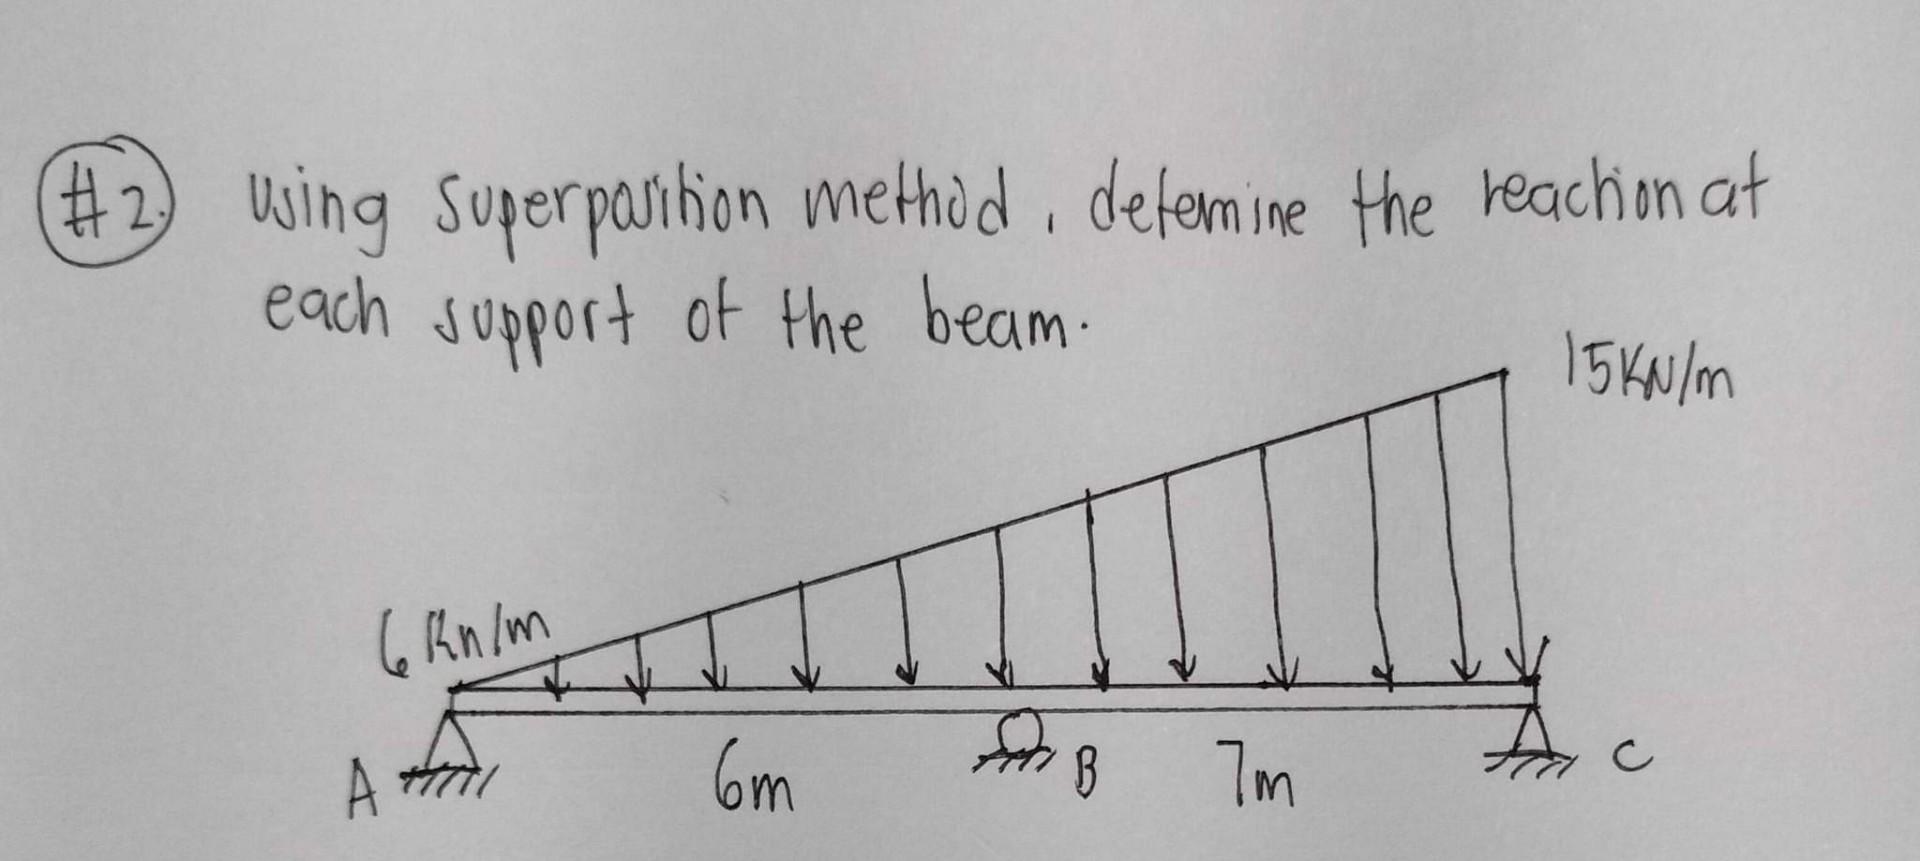 #2. Using superposition method, detemine the reaction at
each support of the beam.
15KN/m
6 Kn/m
A 6m B 7m C